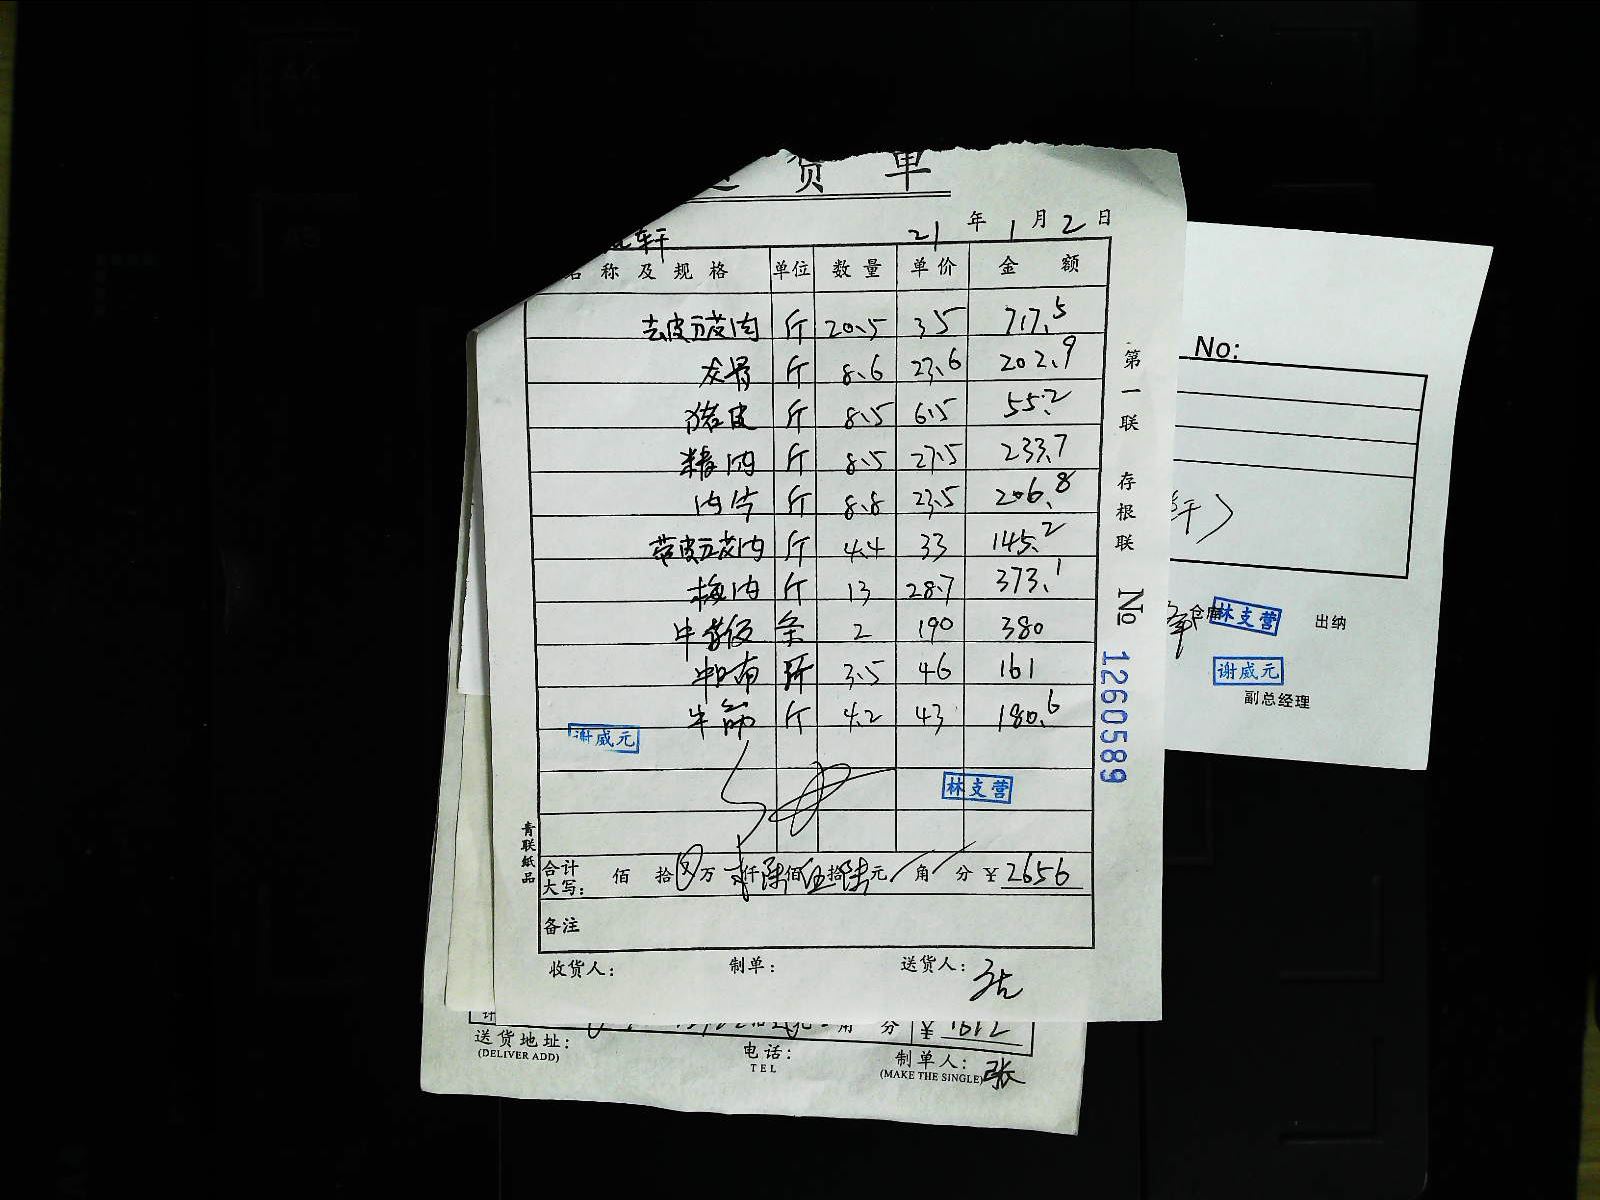 货 单
轩
21 年 1 月 2 日
名 称 及 规 格 单位 数 量 单 价 金 额
去皮五花肉 斤 20.5 35 717.5
龙骨 斤 8.6 23.6 202.9
猪皮 斤 8.5 6.5 55.2
精肉 斤 8.5 27.5 233.7
肉片 斤 8.8 23.5 206.8
带皮五花肉 斤 4.4 33 145.2
梅肉 斤 13 28.7 373.1
条 2 190 380
3.5 46 161
牛筋 斤 4.2 43 180.6
谢威元
林支营
合计
大写: 佰 拾 万 仟陆佰伍拾陆元 角 分 ¥ 2656
备注
收货人: 制单: 送货人:
青联纸品
第一联 存根联 No 1260589
No:
仓库 林支营 出纳
谢威元
副总经理
计 角 分 ¥ 1612
送货地址:
(DELIVER ADD)
电话:
TEL
制单人: 张
(MAKE THE SINGLE)